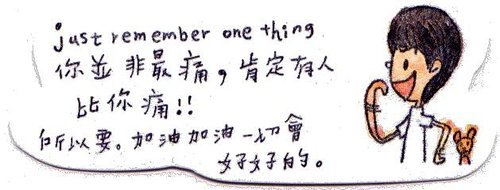 just remember one thing
你並非最痛，肯定有人
比你痛!!
所以要。加油加油一切會
好好的。